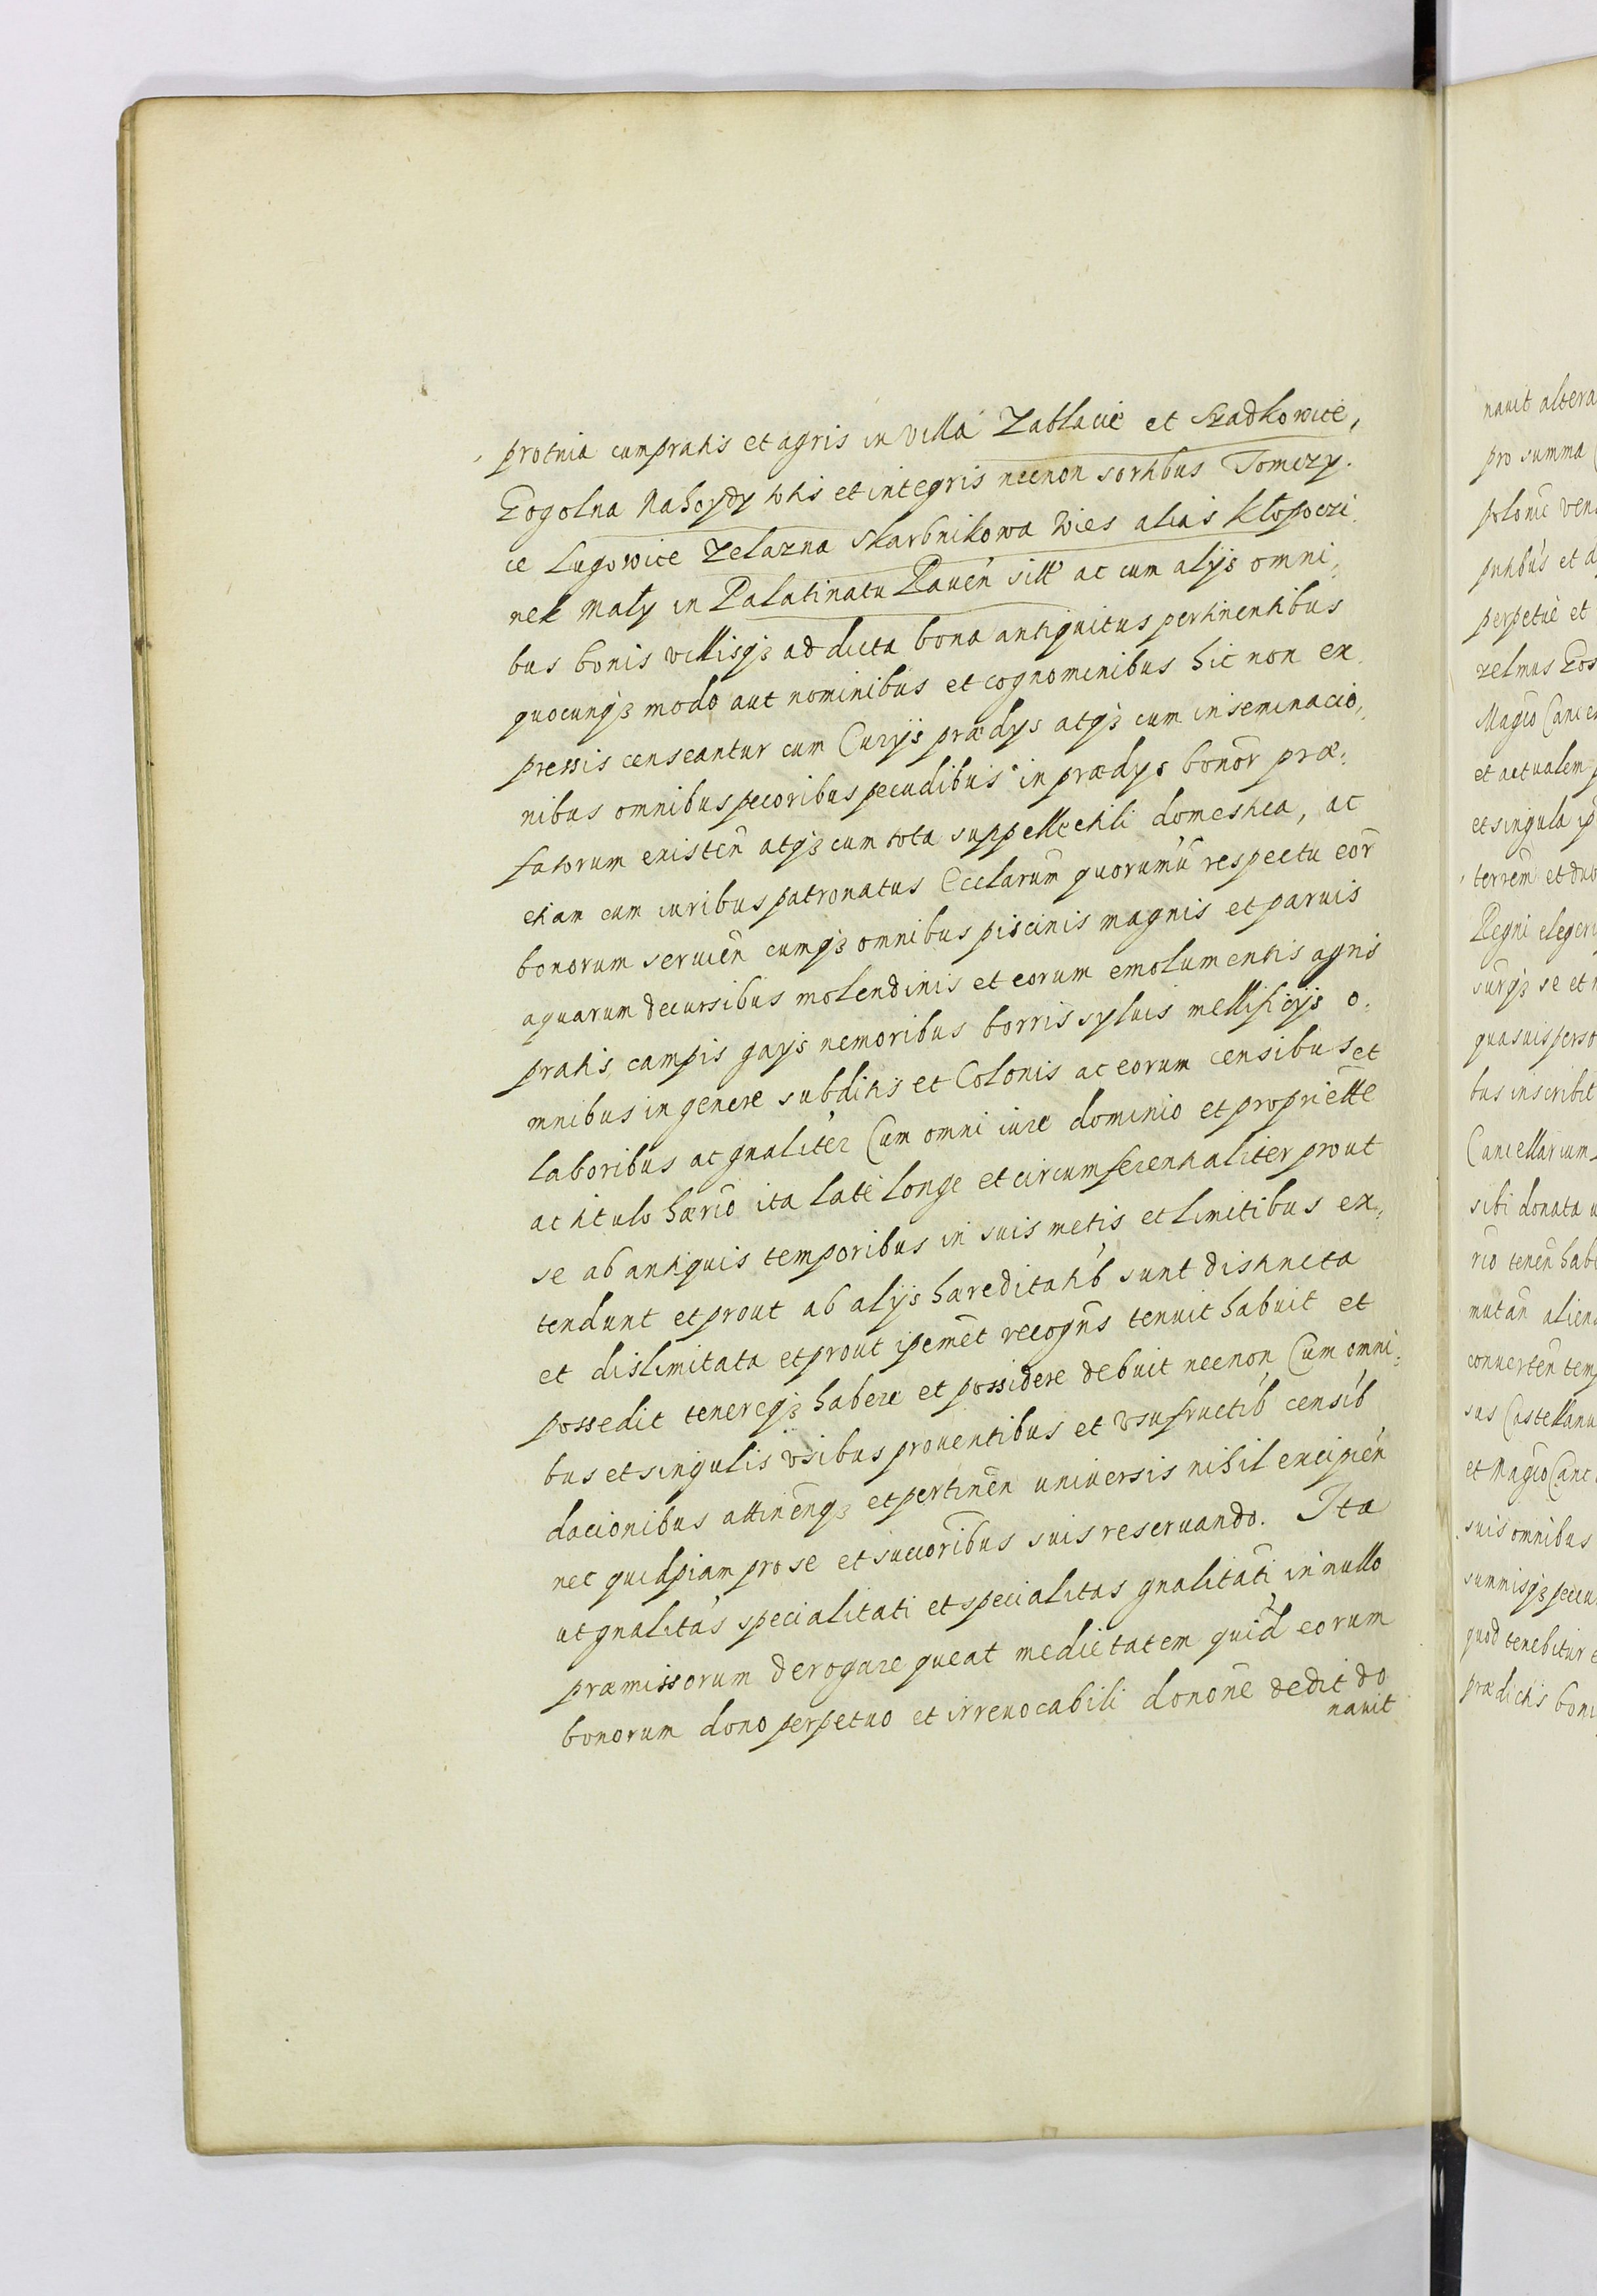 protnia cum pratis et agris in villa Zablacie et Szadkowice,
Rogolna Nahoydy totis et integris necnon sortibus Tomczy
ce Lugowice Zelazna Skarbnikowa Wies alias Kłopoczi
nek Mały in Palatinatu Raueñ sitt ac cum alys omni,
bus bonis villisqȝ ad dicta bona antiquitus pertinentibus
quocunqȝ modo aut nominibus et cognominibus hic non ex
pressis censeantur cum Curijs prædys atqȝ cum inseminacio,
nibus omnibus pecoribus pecudibus in prædys bonor̃ præ,
fatorum existeñ atqȝ cum tota suppellectili domestica, ac
etiam cum iuribus patronatus Ecclarum̃ quorumũ respectu eor̃
bonorum seruieñ cumqȝ omnibus piscinis magnis et paruis
aquarum decursibus molendinis et eorum emolumentis agris
pratis campis gays nemoribus borris syluis mellificijs o,
mnibus in genere subditis et Colonis ac eorum censibus et
laboribus ac gnalitér Cum omni iure dominio et propriette
ac titulo hærio ita laté longe et circumferentialiter prout
se ab antiquis temporibus in suis metis et limitibus ex,
tendunt et prout ab alijs hæreditatib́ sunt distincta
et dislimitata et prout ipemet recogñs tenuit habuit et
possedit tenereqȝ habere et possidere debuit necnon Cum omni,
bus et singulis vsibus prouentibus et vsufructib́ censib́
dacionibus attineñqȝ et pertineñ universis nihil excipień
nec quidpiam pro se et succoribus suis reseruando. Ita
ut gnalitas specialitati et specialitas gnalitati in nullo
præmissorum derogare queat medietatem quid eorum
bonorum dono perpetuo et irreuocabili donone dedit do
nauit
nauit altera
pro summa
polonic ven
perpetué et
zelmus
Magco Cance
et actualem
et singula ip
terrem et duo
Regni eleger
surqȝ se et
quasuis perso
bus inscribit
Cancellarium
sibi donata
rio teneñ hab
mutañ aliena
conuerteñ temp
sus Castellanu
et Magco Canc
suis omnibus
summisqȝ pecu
quod tenebitur
prædictis boni